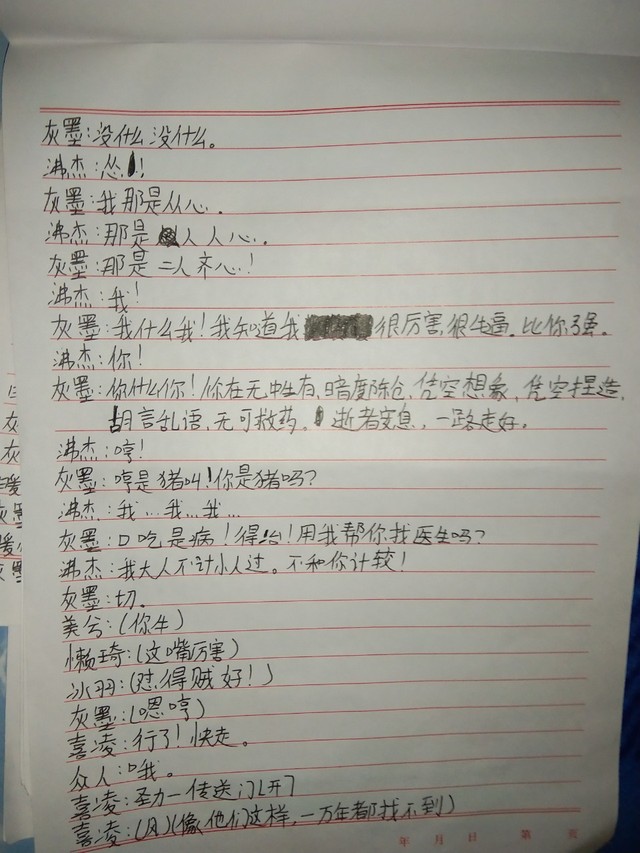 灰墨:没什么没什么。
沸杰:怂!
灰墨:我那是从心.
沸杰:那是人人心.
灰墨:那是二人齐心!
沸杰:我!
灰墨:我什么我!我知道我很厉害,很牛逼。比你强。
沸杰:你!
灰墨:你什么你!你在无中生有,暗度陈仓,凭空想象,凭空捏造,
胡言乱语,无可救药。逝者安息,一路走好。
沸杰:哼!
灰墨:哼是猪叫!你是猪吗?
沸杰:我…我…我…
灰墨:口吃是病!得治!用我帮你找医生吗?
沸杰:我大人不计小人过。不和你计较!
灰墨:切.
美兮:(你牛)
懒琦:(这嘴厉害)
冰羽:(怼得贼好!)
灰墨:(嗯哼)
喜凌:行了!快走。
众人:哦。
喜凌:圣力一传送门(开)
喜凌:(风)(像他们这样,一万年都找不到)
年 月 日 第 页